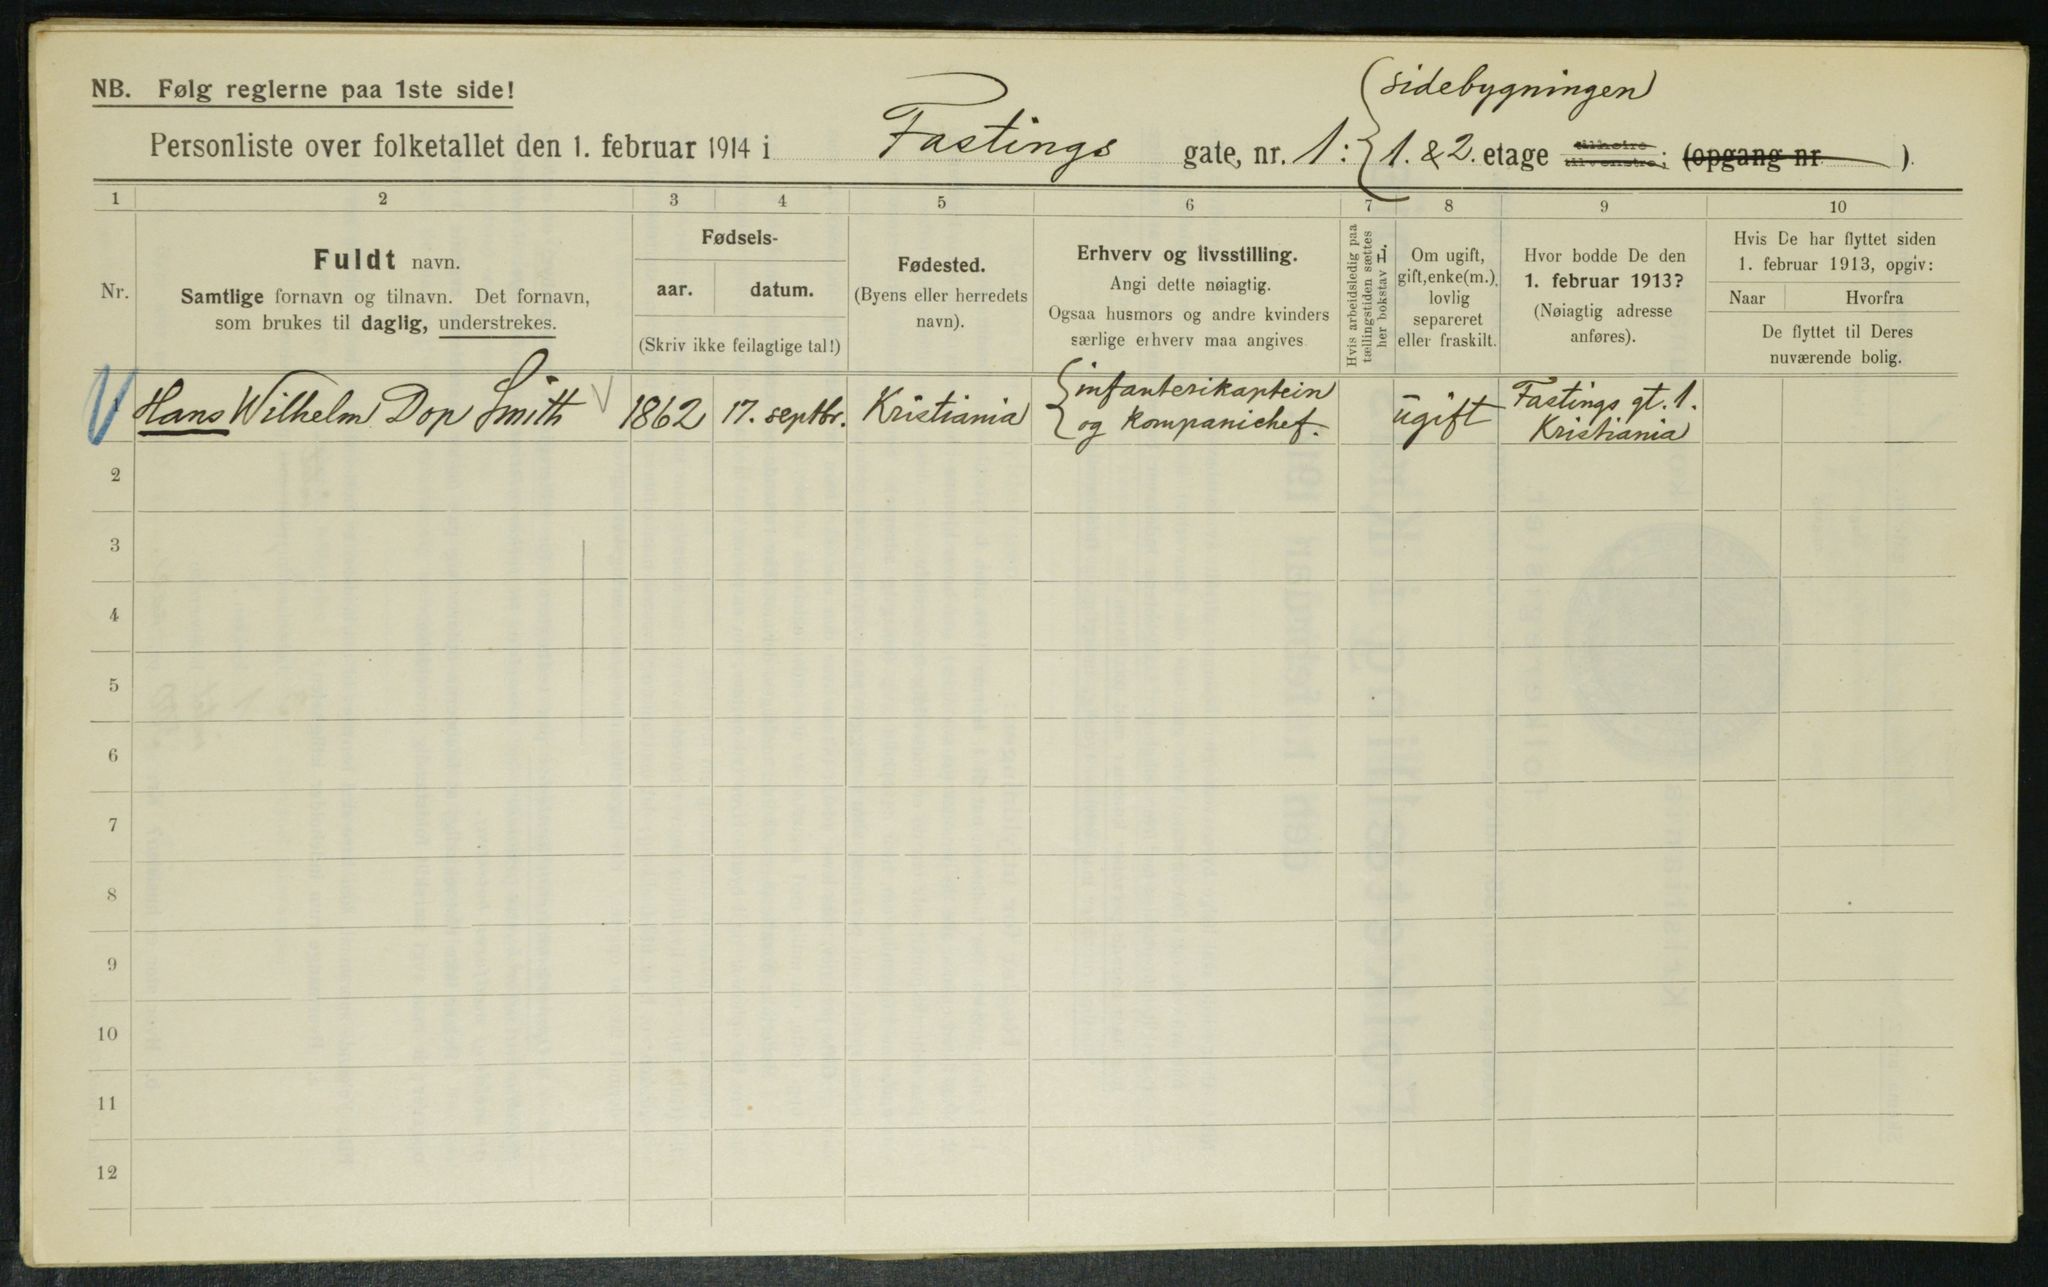 NB. Følg reglerne paa 1ste side!
sidebygningen
Personliste over folketallet den 1. februar 1914 i Fastings gate, nr. 1: 1. & 2. etage tilhøire tilvenstre; (opgang nr. ).
1 2 3 4 5 6 7 8 9 10
Nr.
Fuldt navn.
Samtlige fornavn og tilnavn. Det fornavn,
som brukes til daglig, understrekes.
Fødsels-
aar. datum.
(Skriv ikke feilagtige tal!)
Fødested.
(Byens eller herredets
navn).
Erhverv og livsstilling.
Angi dette nøiagtig.
Ogsaa husmors og andre kvinders
særlige erhverv maa angives
Hvis arbeidsledig paa
tællingstiden sættes
her bokstav L.
Om ugift,
gift, enke(m.),
lovlig
separeret
eller fraskilt.
Hvor bodde De den
1. februar 1913?
(Nøiagtig adresse
anføres).
Hvis De har flyttet siden
1. februar 1913, opgiv:
Naar Hvorfra
De flyttet til Deres
nuværende bolig.
1 Hans Wilhelm Dop Smith 1862 17. septbr. Kristiania infanterikaptein
og kompanichef. ugift Fastings gt. 1.
Kristiania
2
3
4
5
6
7
8
9
10
11
12